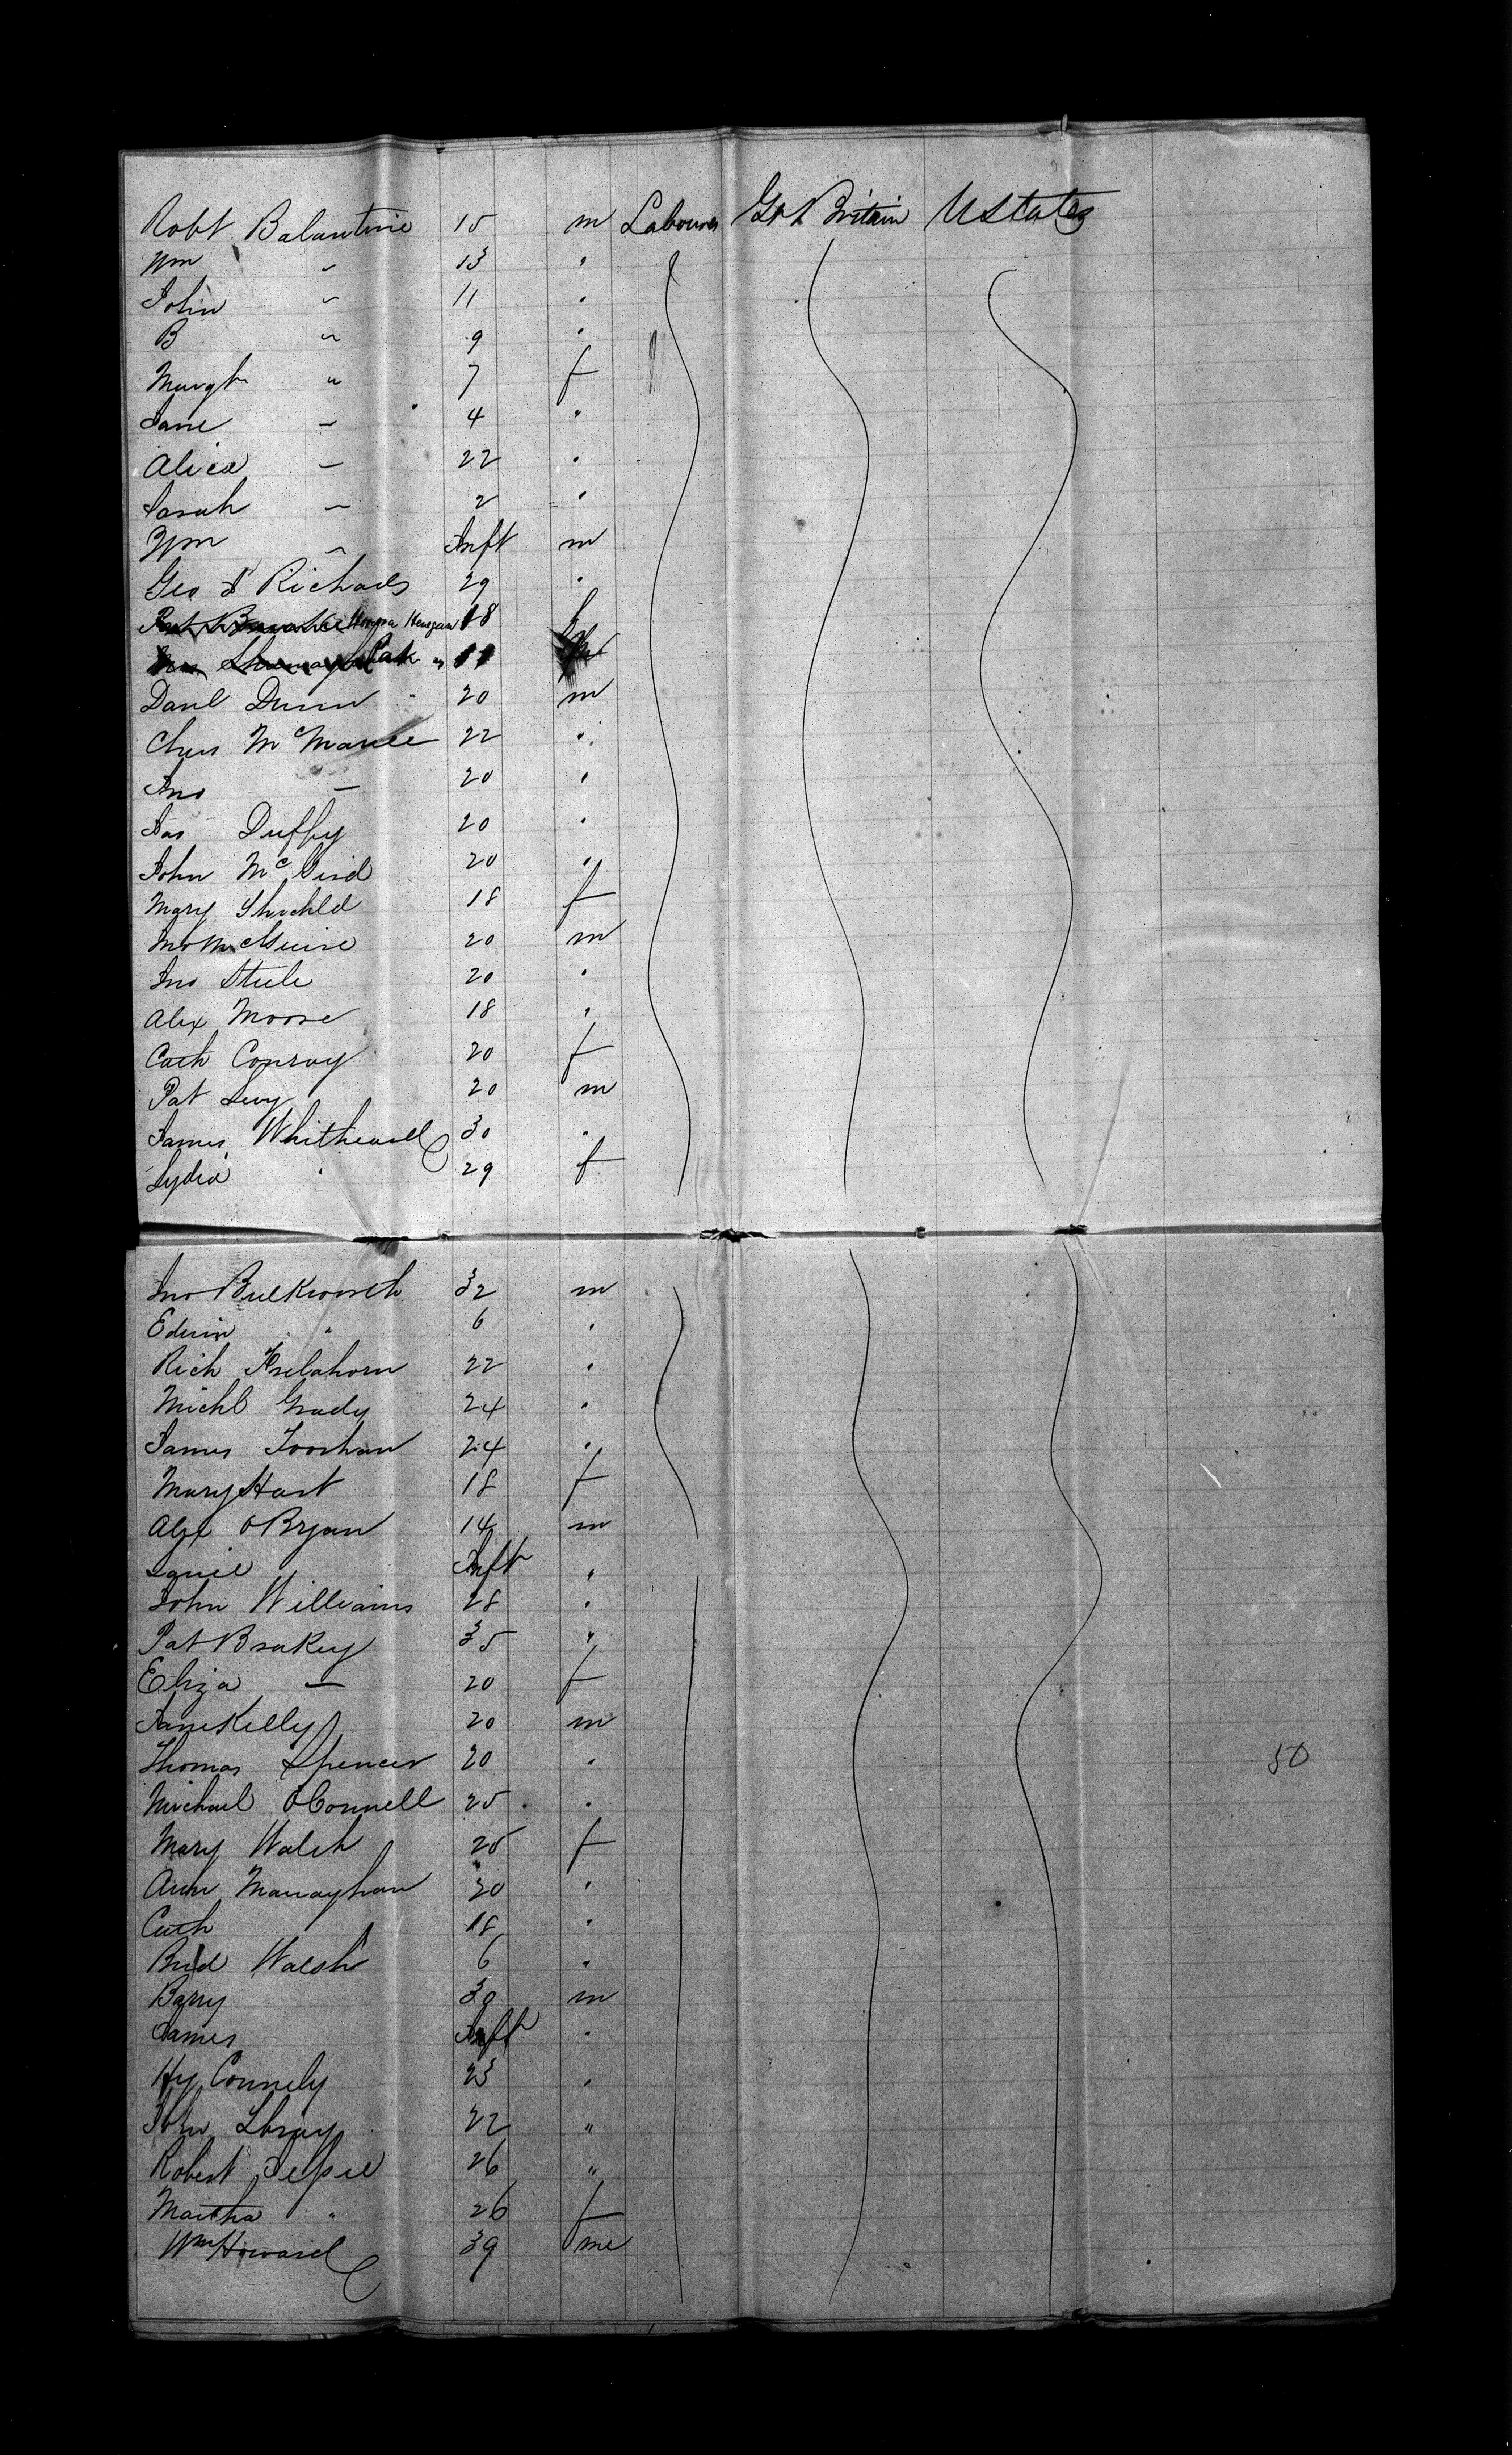 Robt Balantine 15 m Labourer Gt Britain UStates
Wm " 13 "
John " 11 "
B " 9 "
Margt " 7 f
Jane " 4 "
Alice " 22 "
Sarah " 2 "
Wm " Inft m
Geo Richards 29 "
18
Pat " 11
Danl Dunn 20 m
Chas McManee 22 "
Jno " 20 "
Jas Duffy 20 "
John Mc 20 "
Mary 18 f
Jno McGuire 20 m
Jno Steele 20 "
Alex Moore 18 "
Cath Conroy 20 f
Pat Levy 20 m
James 30 "
Lydia " 29 f
Jno Bulkworth 32 m
Edwin " 6 "
Rich 22 "
Michl Grady 24 "
James 24 "
Mary Hart 18 f
Alex OBryan 14 m
Inft "
John Williams 28 "
Pat Brakey 35 "
Eliza — 20 f
Jane Kelly 20 m
Thomas Spencer 20 " 50
Michael OConnell 25 "
Mary Walsh 25 f
Ann Manayhan 20 "
Cath 18 "
Brid Walsh 6 "
Barry 30 m
James Inft "
Hy Connely 23 "
John 22 "
Robert 26 "
Martha " 26 f
Wm Howard 39 m